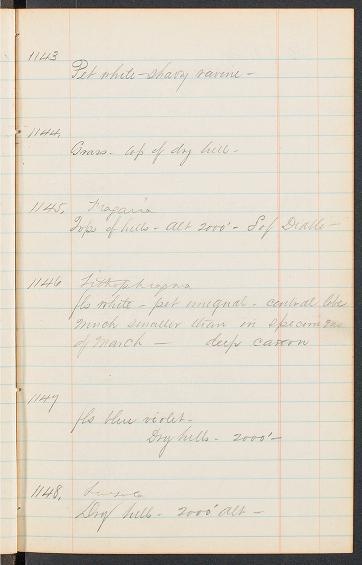 1143
Pet white - shady ravine -
1144
Grass - top of dry hill -
1145. Fragaria
Tops of hills - Alt 2000' - S of Diablo -
1146 Lithophragma
fls white - pet unequal - central lobe
much smaller than in specimens
of March - deep canon
1147
fls blue violet -
Dry hills - 2000' -
1148.
Dry hills - 2000' alt -